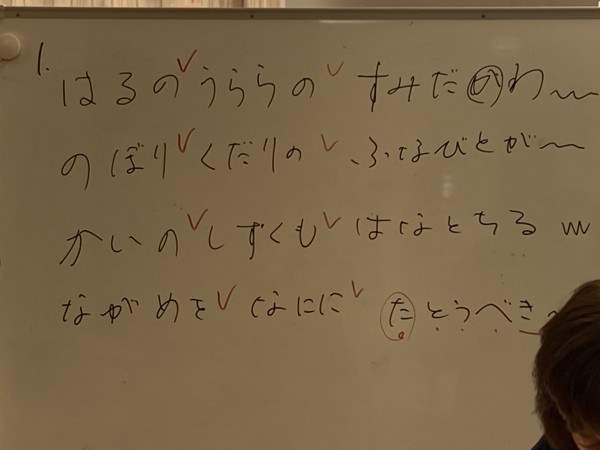 1. はるの うららの すみだがわ〜
のぼり くだりの ふなびとが〜
かいの しずくも はなとちる w
ながめを なにに たとうべき